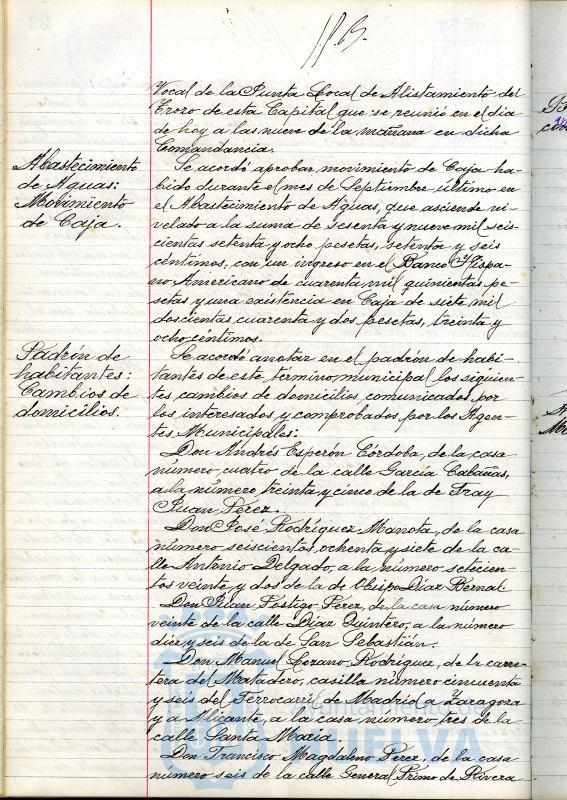 Vocal de la Junta Local de Alistamiento del
Trozo de esta Capital que se reunió en el dia
de hoy a las nueve de la mañana en dicha
Comandancia.
Abastecimiento
de Aguas:
Movimiento
de Caja.
Se acordó aprobar movimiento de Caja ha-
bido durante el mes de Septiembre último en
el Abastecimiento de Aguas, que asciende ni-
velado a la suma de sesenta y nueve mil seis-
cientas setenta y ocho pesetas, setenta y seis
céntimos, con un ingreso en el Banco Hispa-
no Americano de cuarenta mil quinientas pe-
setas y una existencia en Caja de siete mil
doscientas cuarenta y dos pesetas, treinta y
ocho céntimos.
Padrón de
habitantes:
Cambios de
domicilios.
Se acordó anotar en el padrón de habi-
tantes de este término municipal los siguien-
tes cambios de domicilios comunicados por
los interesados y comprobados por los Agen-
tes Municipales:
Don Andrés Esperón Córdoba, de la casa
número cuatro de la calle García Cabañas,
a la número treinta y cinco de la de Fray
Juan Pérez.
Don José Rodríguez Manota, de la casa
número seiscientos ochenta y siete de la ca-
lle Antonio Delgado, a la número setecien-
tos veinte y dos de la de Obispo Díaz Bernal.
Don Juan Postigo Pérez, de la casa número
veinte de la calle Díaz Quintero, a la número
diez y seis de la de San Sebastián.
Don Manuel Lozano Rodríguez, de la carre-
tera del Matadero, casilla número cincuenta
y seis del Ferrocarril de Madrid a Zaragoza
y a Alicante, a la casa número tres de la
calle Santa María.
Don Francisco Magdaleno Pérez, de la casa
número seis de la calle General Primo de Rivera
HUELVA